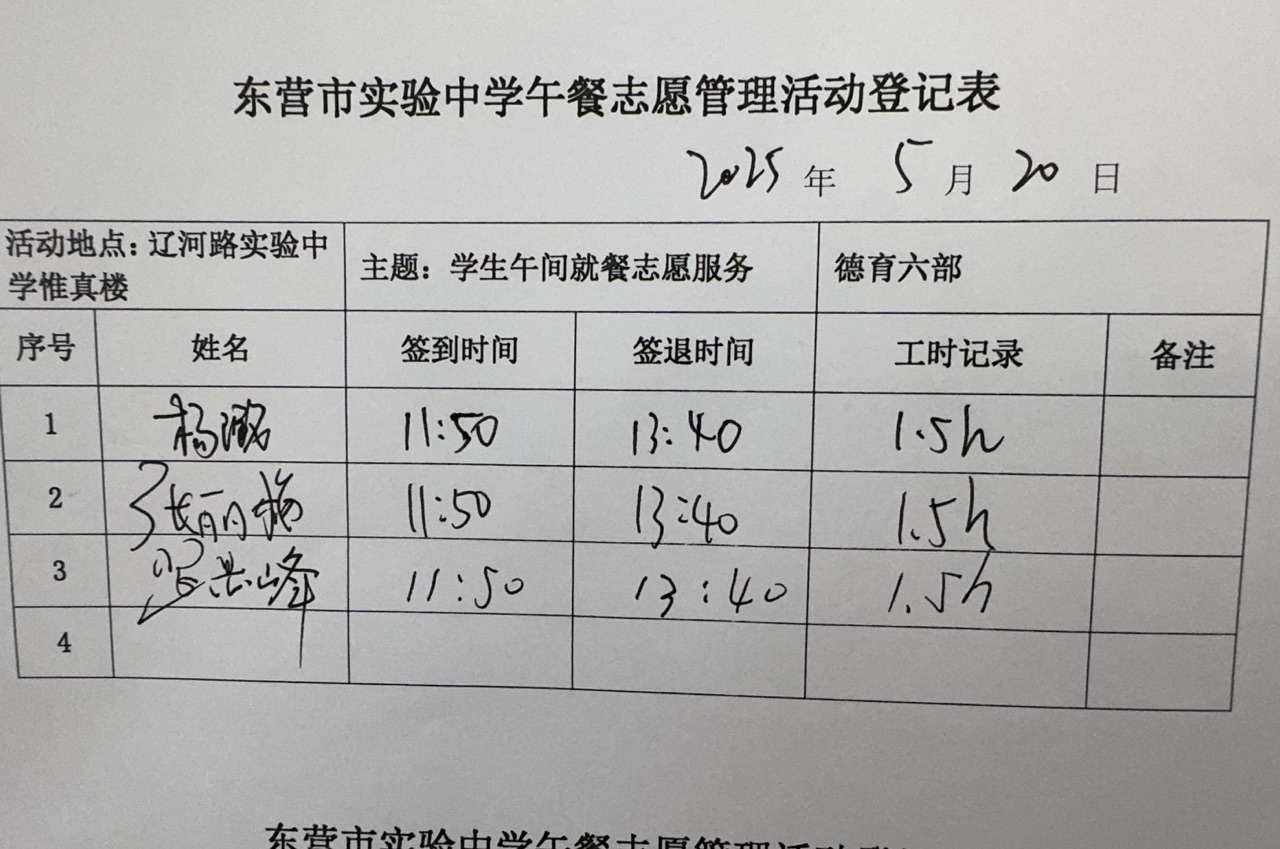 东营市实验中学午餐志愿管理活动登记表
2025 年 5 月 20 日
活动地点：辽河路实验中学惟真楼 主题：学生午间就餐志愿服务 德育六部
序号 姓名 签到时间 签退时间 工时记录 备注
1 杨 11:50 13:40 1.5h
2 张丽梅 11:50 13:40 1.5h
3 峰 11:50 13:40 1.5h
4
东营市实验中学午餐志愿管理活动登